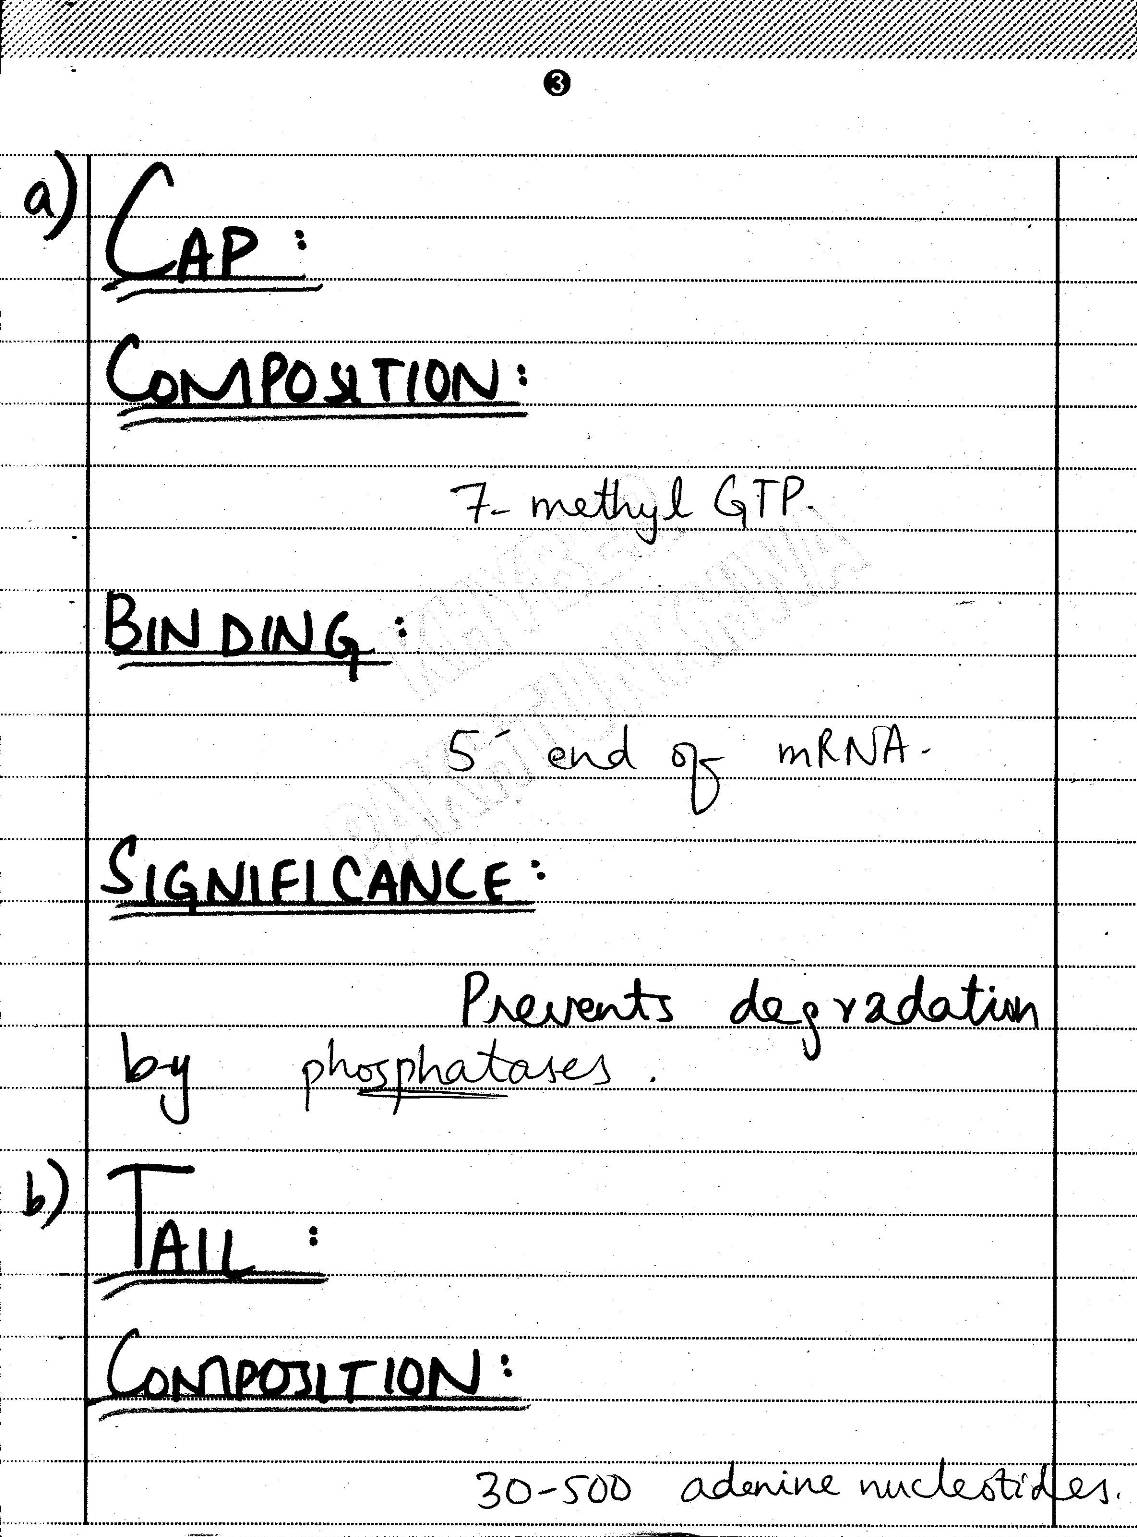 3
a) CAP:
COMPOSITION:
7- methyl GTP.
BINDING:
5´ end of mRNA.
SIGNIFICANCE:
Prevents degradation
by phosphatases.
b) TAIL:
COMPOSITION:
30-500 adenine nucleotides.